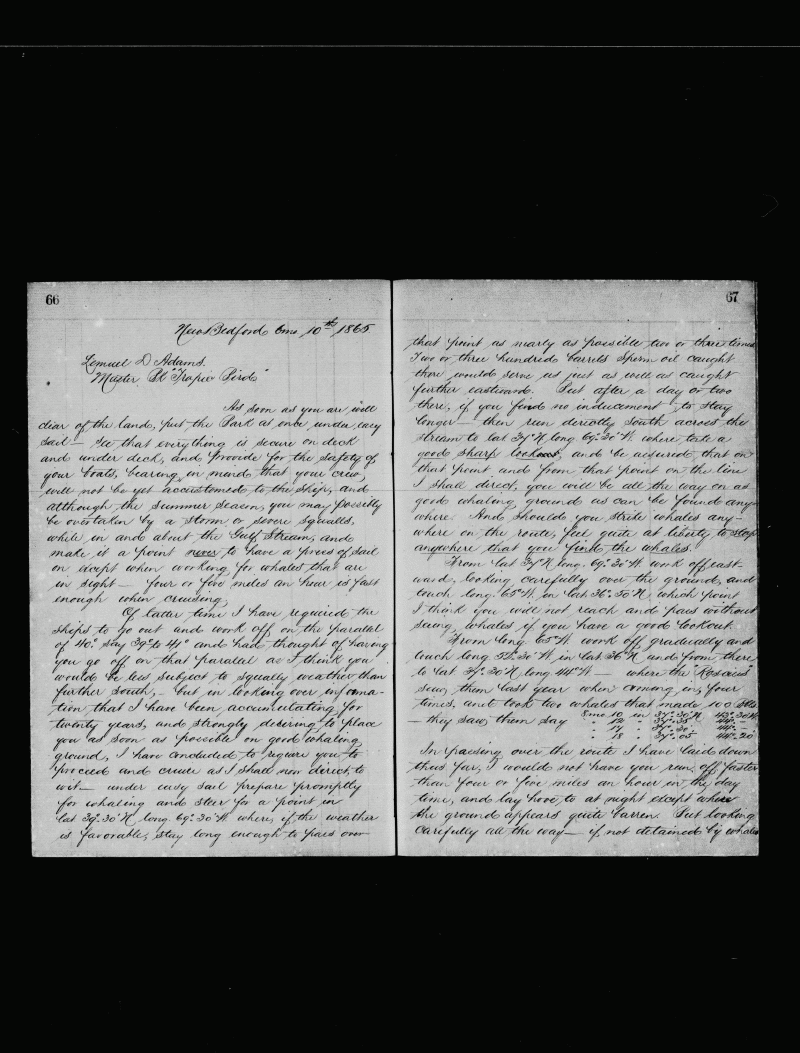 66
New Bedford 6mo 10th 1865
Lemuel D Adams.
Master Bk "Tropic Bird"
As soon as you are well
clear of the land, put the Bark at once under easy
sail — See that everything is secure on deck
and under deck, and provide for the safety of
your boats, bearing in mind that your crew,
will not be yet accustomed to the ship, and
although the summer season, you may possibly
be overtaken by a storm or severe squalls,
while in and about the Gulf Stream, and
make it a point never to have a press of sail
on except when working for whales that are
in sight — four or five miles an hour is fast
enough when cruising,
Of latter time I have required the
ships to go out and work off on the parallel
of 40° say 39° to 41° and had thought of having
you go off on that parallel as I think you
would be less subject to squally weather than
further south, — but in looking over informa-
tion that I have been accumulating for
twenty years, and strongly desiring to place
you as soon as possible on good whaling
ground, I have concluded to require you to
proceed and cruise as I shall now direct, to
wit — under easy sail prepare promptly
for whaling and steer for a point in
lat 39°.30' N long. 69°.30' W where, if the weather
is favorable, stay long enough to pass over
67
that point as nearly as possible two or three times
Two or three hundred barrels sperm oil caught
there would serve us just as well as caught
further eastward. But after a day or two
there, if you find no inducement to stay
longer — then run directly south across the
stream to lat 37° N long 69°.30' W. where take a
good sharp lookout, and be assured, that on
that point and from that point on the line
I shall direct, you will be all the way on as
good whaling ground as can be found any-
where. And should you strike whales any-
where on the route, feel quite at liberty to stop
anywhere that you find the whales.
From lat 37° N long. 69°.30' W. work off east-
ward, looking carefully over the ground, and
touch long. 65° W. in lat 36°.50' N which point
I think you will not reach and pass without
seeing whales if you have a good lookout.
From long 65° W. work off gradually and
touch long 55°.30' W in lat 36° N and from there
to lat 37°.30' N long 44° W — where the "Roscius"
saw them last year when coming in, four
times, and took two whales that made 100 bbls
— they saw them say 8mo 10 in 37°.30' N 45°.30' W
" 12 " 37°.35 44° —
" 14 " 37°.30 44° —
" 18 " 37°.05 44°.20
In passing over the route I have laid down
thus far, I would not have you run off faster
than four or five miles an hour in the day
time, and lay hove to at night except where
the ground appears quite barren. But looking
carefully all the way — if not detained by whales